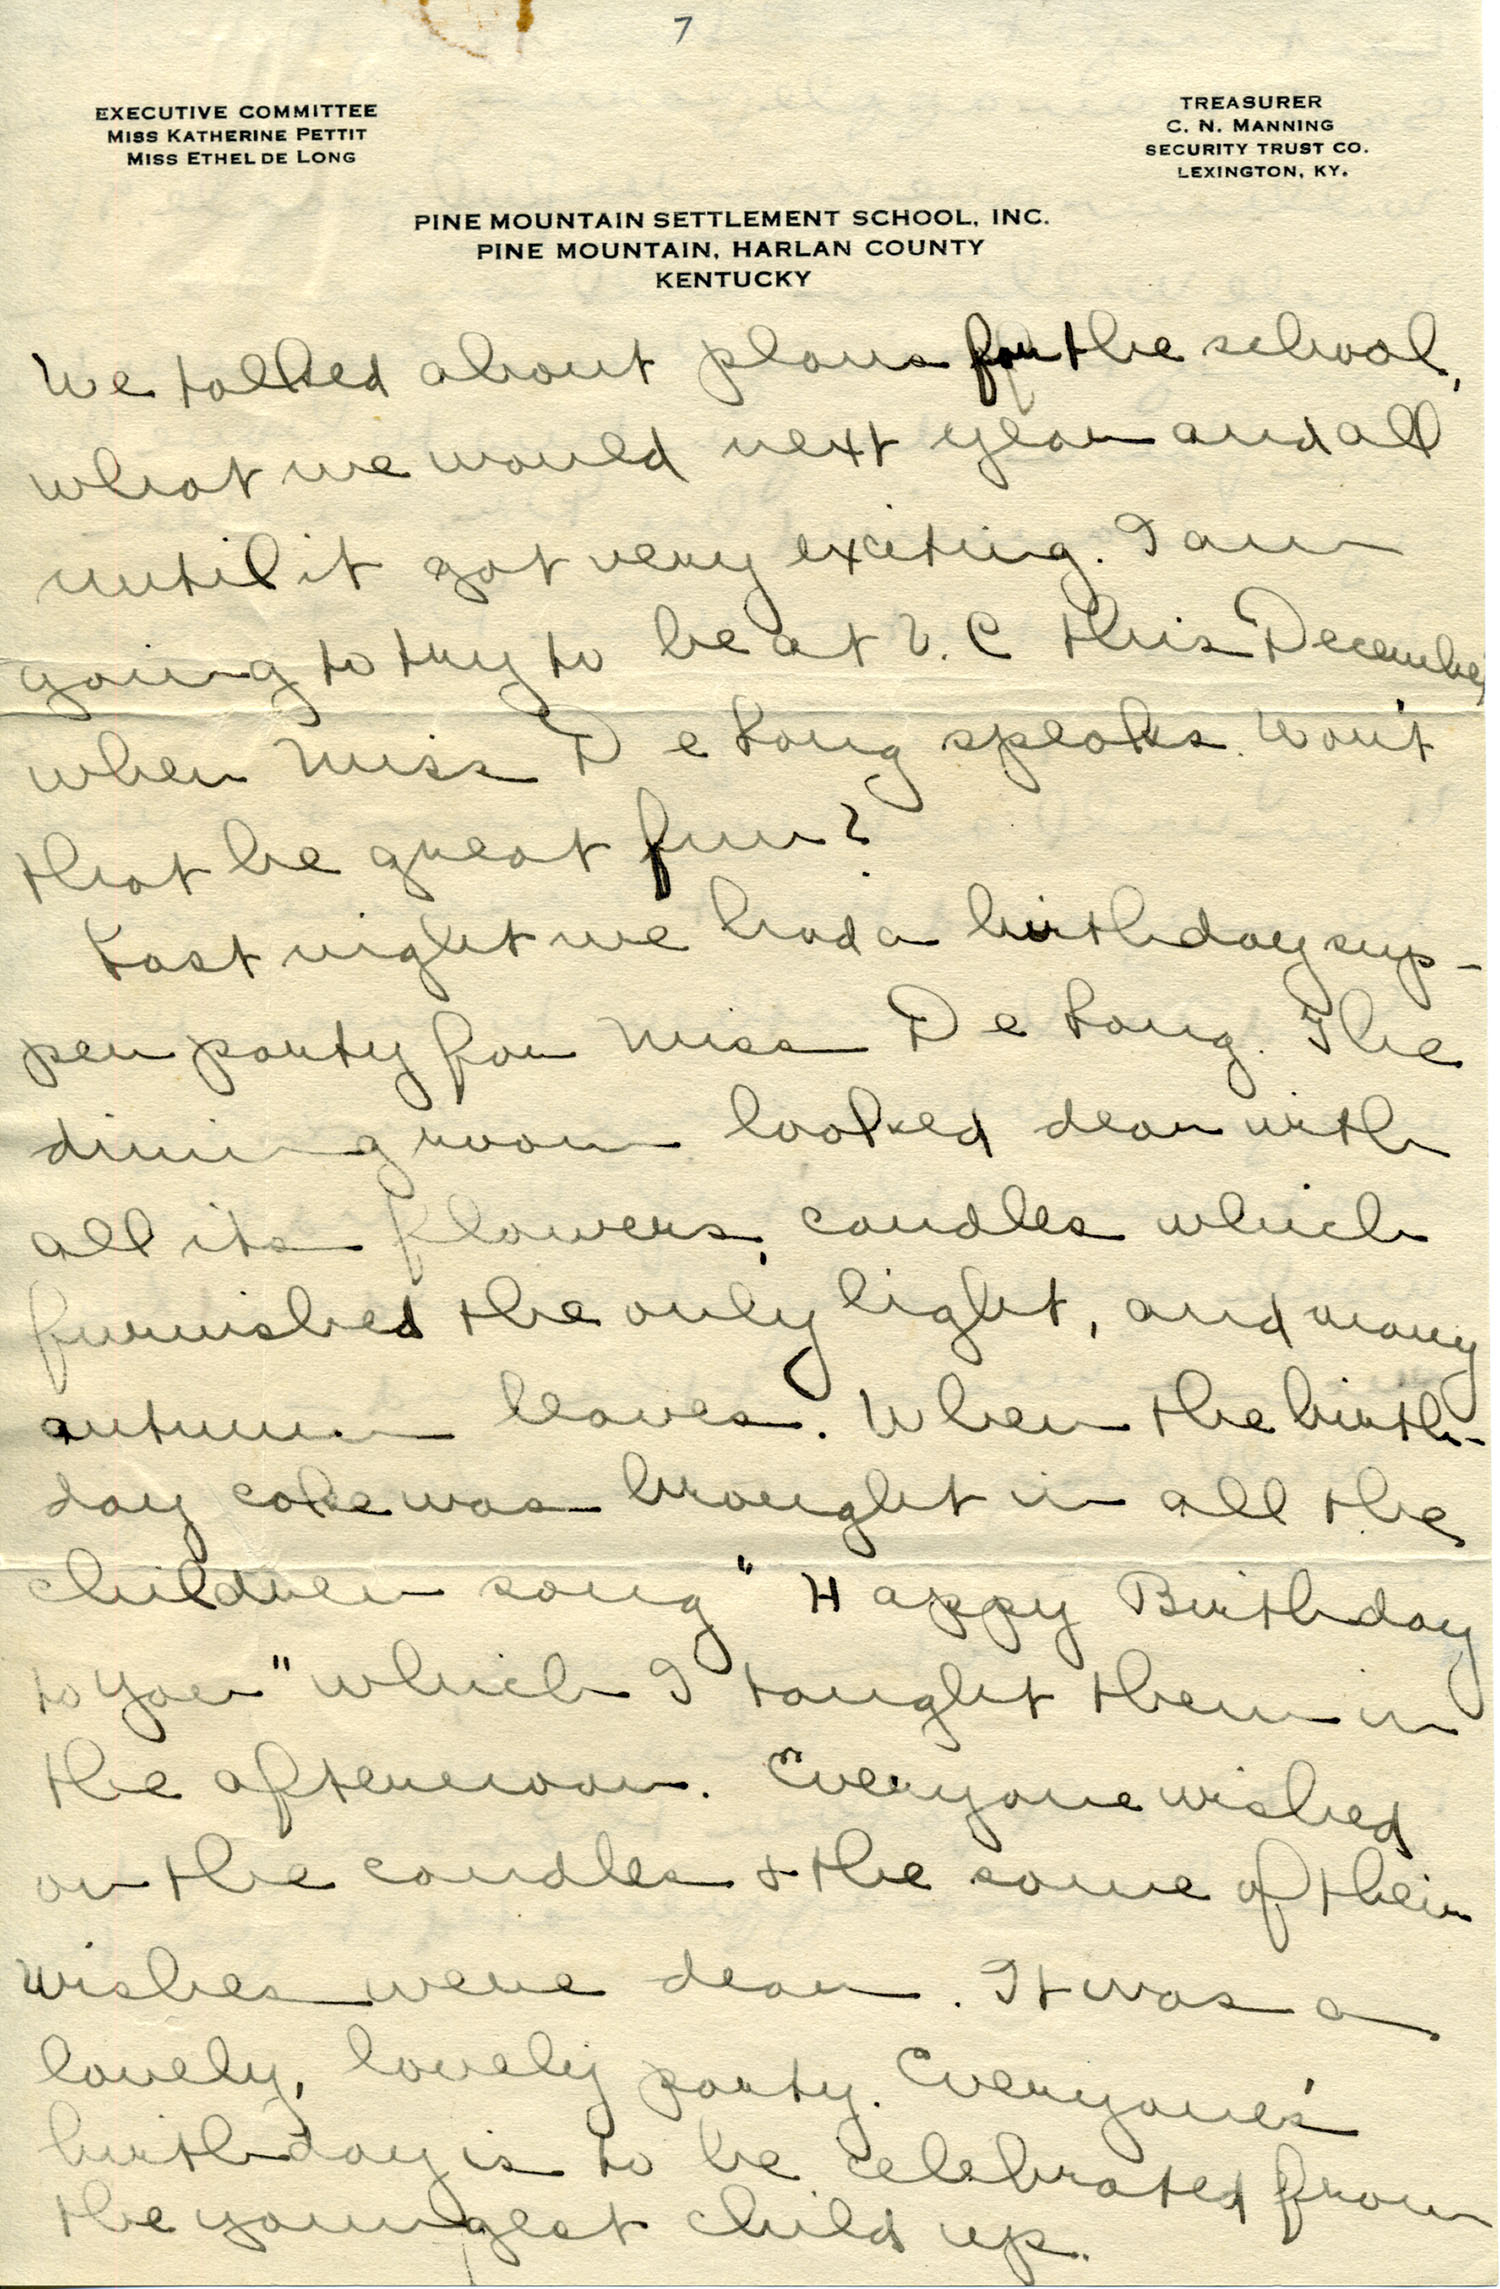 7
EXECUTIVE COMMITTEE
MISS KATHERINE PETTIT
MISS ETHEL DE LONG
TREASURER
C. N. MANNING
SECURITY TRUST CO.
LEXINGTON, KY.
PINE MOUNTAIN SETTLEMENT SCHOOL, INC.
PINE MOUNTAIN, HARLAN COUNTY
KENTUCKY
We talked about plans for the school,
what we would next year and all
until it got very exciting. I am
going to try to be at V. C this December
when Miss De Long speaks. Won't
that be great fun?
Last night we had a birthday sup-
per party for Miss De Long. The
dining room looked dear with
all its flowers, candles which
furnished the only light, and many
autumn leaves. When the birth-
day cake was brought in all the
children song "Happy Birthday
to you" which I taught them in
the afternoon. Everyone wished
on the candles & the some of their
wishes were dear. It was a
lovely, lovely party. Everyone's
birthday is to be celebrated from
the youngest child up.